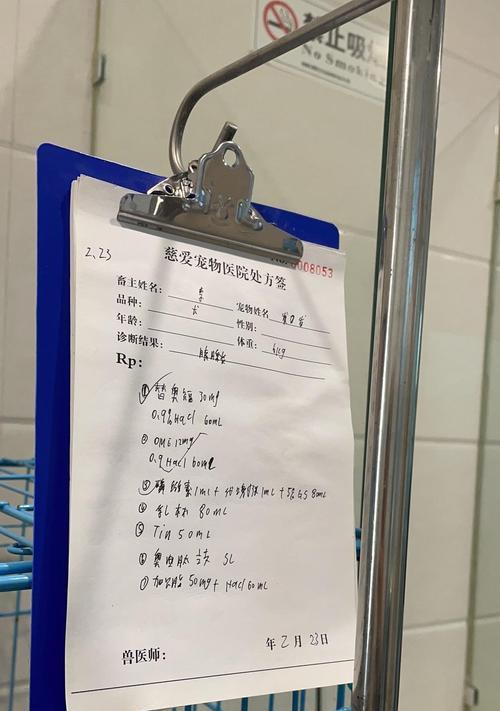 禁止吸
No Smoking
No: 0008053
2.23
慈爱宠物医院处方签
畜主姓名: 李 宠物姓名
品种: 犬 性别:
年龄: 体重: 6kg
诊断结果: 胰腺炎
Rp:
① 30mg
0.9% Nacl 60mL
② OME 12mg
0.9 Nacl 60mL
③ 1ml + 1mL + 5% GS 80mL
④ 乳林 80mL
⑤ Tin 50mL
⑥ 奥曲肽 SL
⑦ 加贝酯 50mg + Nacl 60mL
兽医师: 年 2 月 23 日